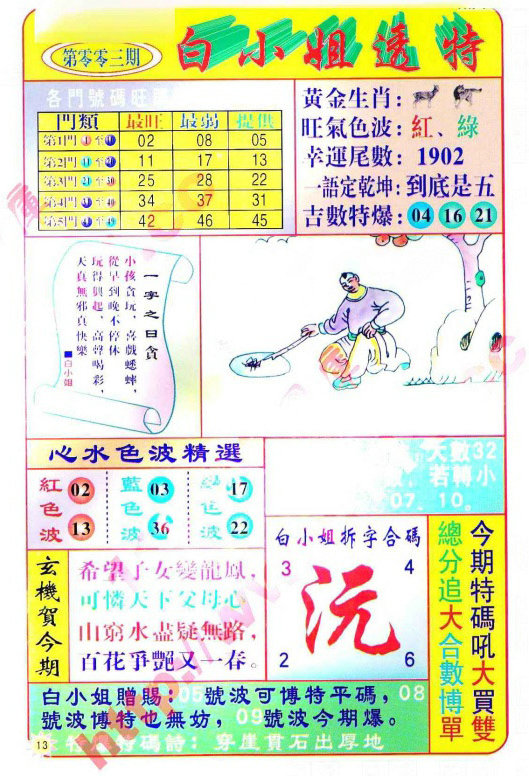 第零零三期
白小姐透特
各門號碼旺
門類 最旺 最弱 提供
第1門 1至 02 08 05
第2門 至20 11 17 13
第3門 21至30 25 28 22
第4門 至40 34 37 31
第5門 41至49 42 46 45
黃金生肖:
旺氣色波:紅、綠
幸運尾數: 1902
一語定乾坤:到底是五
吉數特爆: 04 16 21
一字之曰貪
小孩貪玩,喜戲蟋蟀,
從早到晚不停休
玩得興起,高聲喝彩,
天真無邪真快樂
■白小姐
心水色波精選
紅色波 02 13
藍色波 03 36
色波 17 22
大數32
若轉小
07.10。
白小姐拆字合碼
3 4
沅
2 6
今期特碼吼大買雙
總分追大合數博單
玄機賀今期
希望子女變龍鳳,
可憐天下父母心
山窮水盡疑無路,
百花爭艷又一春。
白小姐贈賜:05號波可博特平碼,08
號波博特也無妨,09號波今期爆。
特碼詩:穿崖貫石出厚地
13
http://w